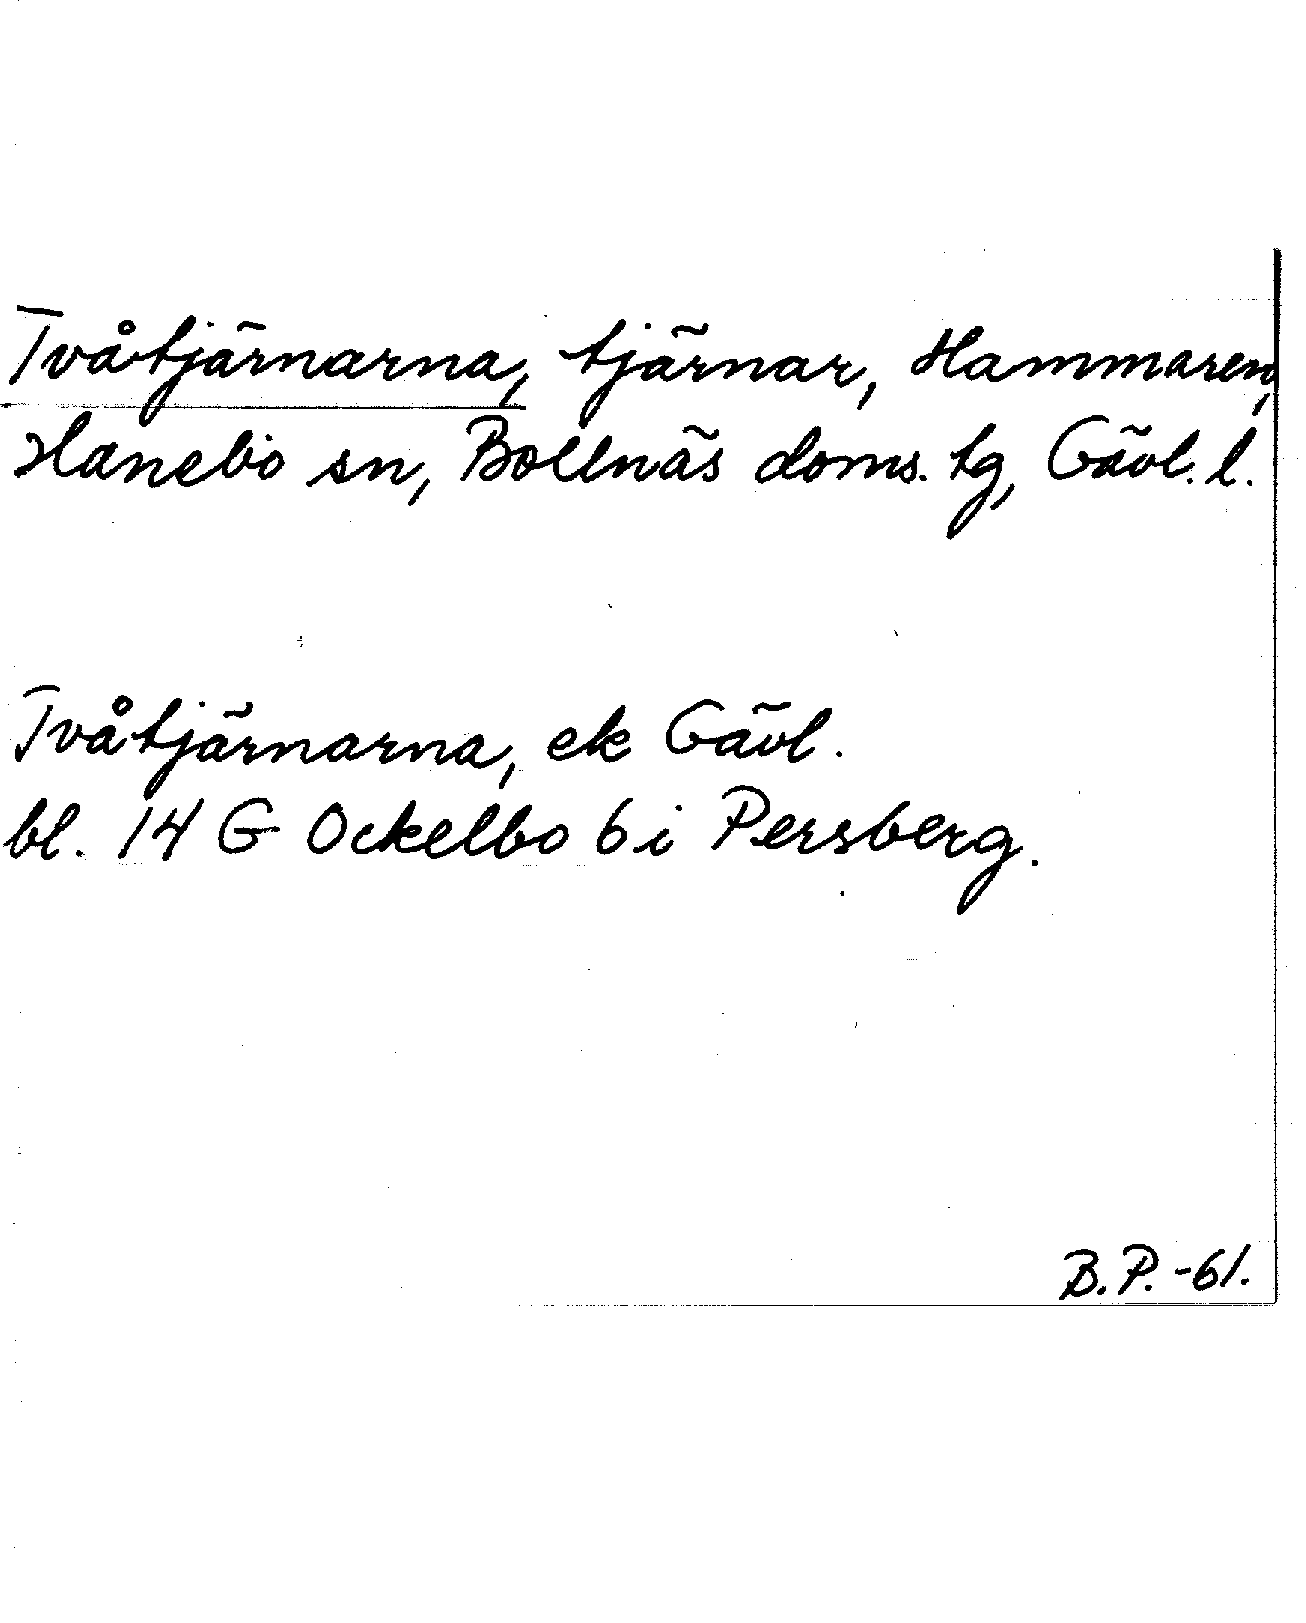 Tvåtjärnarna, tjärnar, Hammaren,
Hanebo sn, Bollnäs doms. tg, Gävl. l.
Tvåtjärnarna, ek Gävl.
bl. 14 G Ockelbo 6 i Persberg.
B.P. -61.